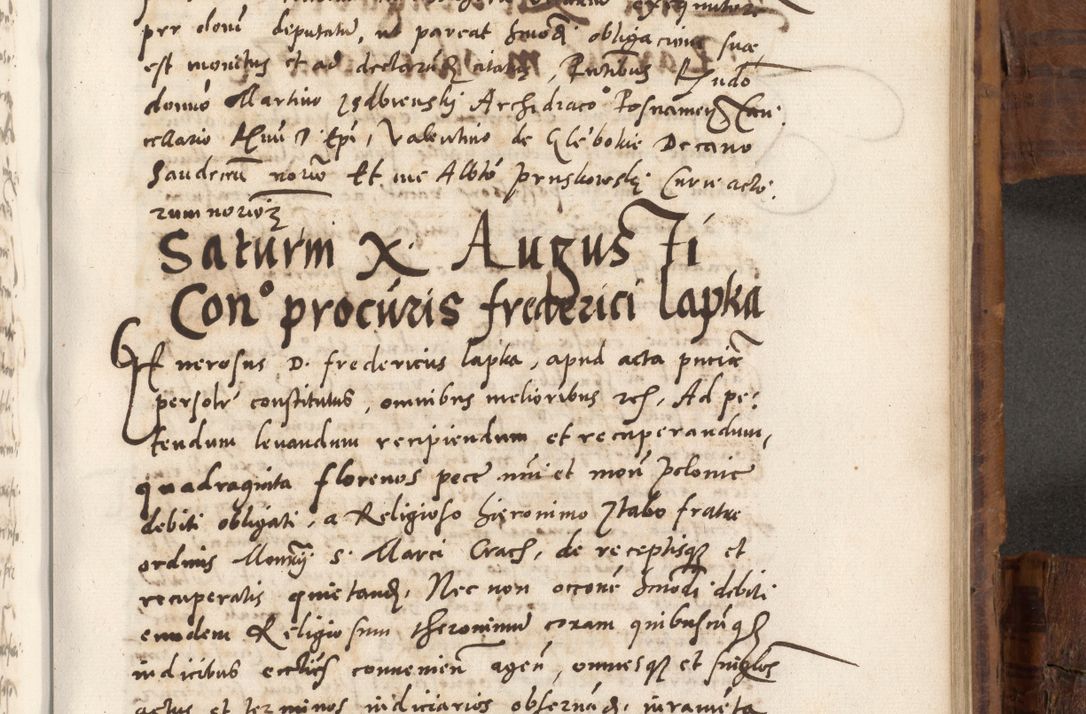 prr domi deputatum, ut pareat hmoi obligacioni suae
est monitus et ad declarand citatus, Prntibus Rndo
domino Martino Jzdbienskj Archidiacono Posnanien Can
cellario Rmi D Epi, Valentino de Glebokie Decano
Sandecen norio Et me Albto Pruskowskj Curie acto
rum notorio
Saturni X Augusti
Cono procuris frederici Lapka
Generosus D. fredericus Lapka, apud acta pntia
persolr constitutus, omnibus melioribus rch, Ad pe:
tendum levandum recipiendum et recuperandum,
quadraginta florenos pece nui et mon Polonie
debiti obligati, a Religioso Hieronimo Jtabo fratre
ordinis Monrij S. Marci Crach, de receptisque et
recuperatis quietand, Nec non occone hmodi debiti
eundem Religiosum Iheronimum coram quibuscunque
iudicibus ecclicis conuenien agen, omnesque et singulos
actus et terminos iudiciarios obseruand, iuramenta